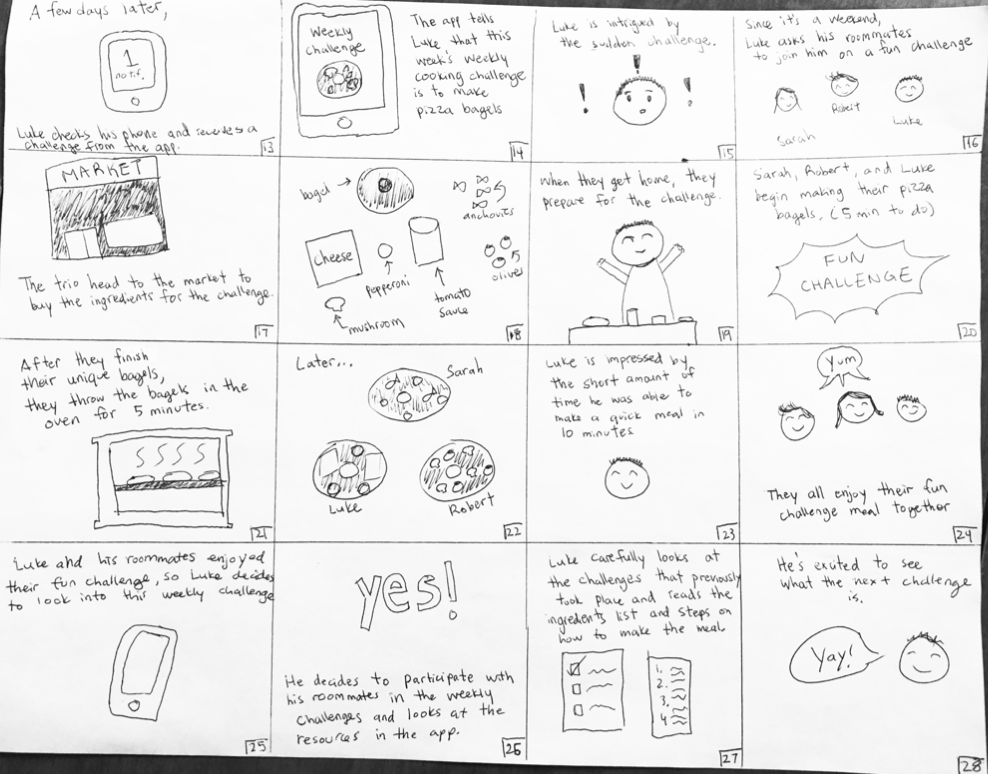 A few days later,
1
notif.
Luke checks his phone and receives a
challenge from the app.
13
Weekly
Challenge
The app tells
Luke, that this
week's weekly
cooking challenge
is to make
pizza bagels
14
Luke is intrigued by
the sudden challenge.
! ! !
15
Since it's a weekend,
Luke asks his roommates
to join him on a fun challenge
Sarah
Robert
Luke
16
MARKET
The trio head to the market to
buy the ingredients for the challenge.
17
bagel
anchovies
cheese
pepperoni
tomato
sauce
olives
mushroom
18
When they get home, they
prepare for the challenge.
19
Sarah, Robert, and Luke
begin making their pizza
bagels, (5 min to do)
FUN
CHALLENGE
20
After they finish
their unique bagels,
they throw the bagels in the
oven for 5 minutes.
21
Later...
Sarah
Luke
Robert
22
Luke is impressed by
the short amount of
time he was able to
make a quick meal in
10 minutes
23
Yum
They all enjoy their fun
challenge meal together
24
Luke and his roommates enjoyed
their fun challenge, so Luke decides
to look into this weekly challenge
25
yes!
He decides to participate with
his roommates in the weekly
challenges and looks at the
resources in the app.
26
Luke carefully looks at
the challenges that previously
took place and reads the
ingredients list and steps on
how to make the meal.
1.
2.
3.
4
27
He's excited to see
what the next challenge
is.
Yay!
28